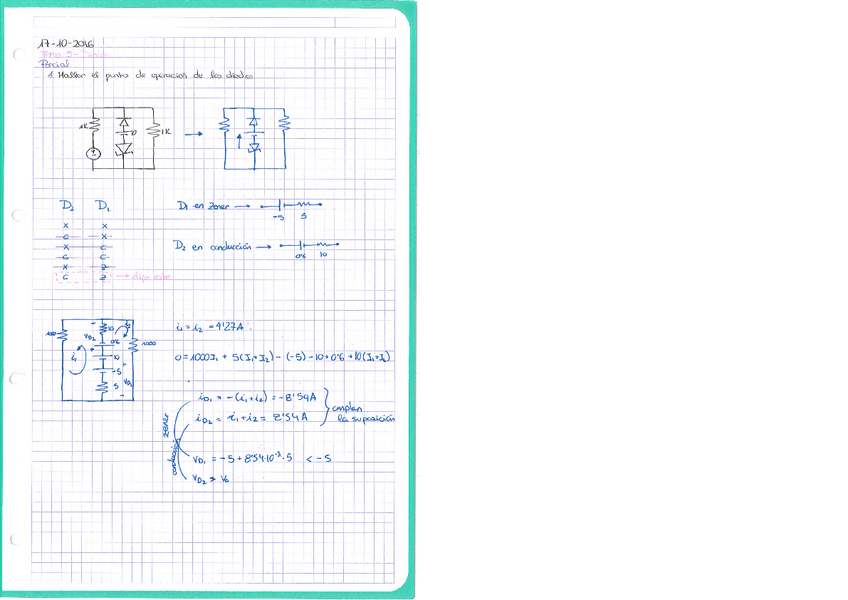 17-10-2016
Parcial
1. Hallar el punto de operación de los diodos
1K
10
1K
D₂ D₁
x x
c x
x c
c c
x z
c z → elijo este
D₁ en zener →
-5 5
D₂ en conducción →
0'6 10
10
V_D2
0'6
1000
i₁
10
-5
5
V_D1
i₁ = i₂ = 4'27A
0 = 1000I₁ + 5(I₁+I₂) - (-5) - 10 + 0'6 + 10(I₁+I₂)
i_D1 = -(i₁+i₂) = -8'54A
i_D2 = i₁+i₂ = 8'54A
cumplen
la suposición
zener
conducción
V_D1 = -5 + 8'54·10⁻³·5 < -5
V_D2 > V₀